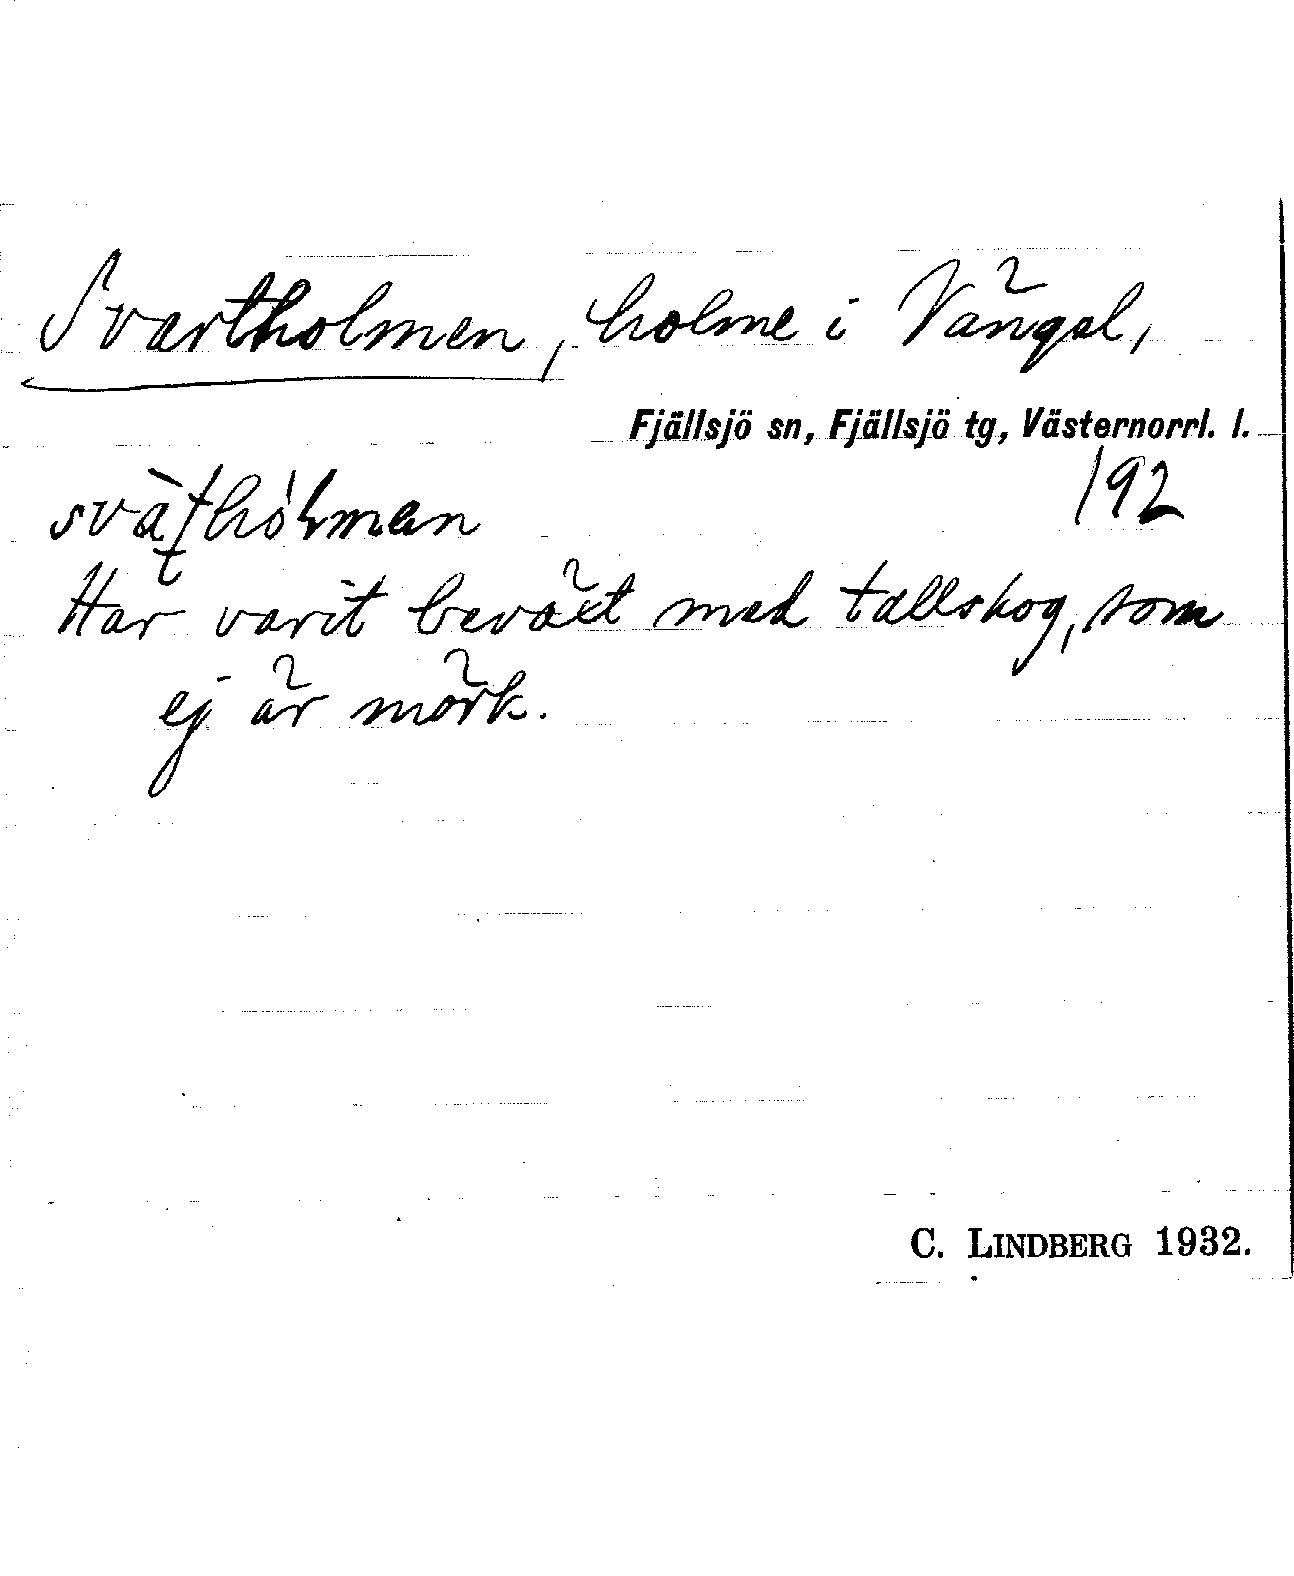 Svartholmen, holme i Vängel,
Fjällsjö sn, Fjällsjö tg, Västernorrl. l.
192
Har varit beväxt med tallskog, som
ej är mörk.
C. LINDBERG 1932.